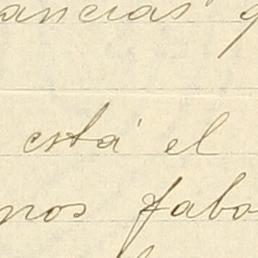 ancias
está el
nos fabo